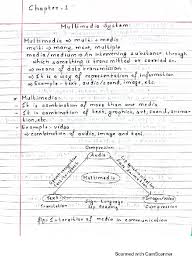 Chapter-1
Multimedia System:
Multimedia => multi + media
multi => many, most, multiple
media/medium => An intervening substance through
which something is transmitted or carried on.
=> means of data transmission
=> It is a way of representation of information.
Example:- text, audio/sound, image, etc.
Multimedia:-
It is combination of more than one media
It is combination of text, graphic, art, sound, animation, etc.
Example:- video
=> combination of audio, image and text.
Compression
Audio
Multimedia
Text
Translation
Sign Language
Lip Reading
Compression
fig:- Transition of media in communication
Scanned with CamScanner